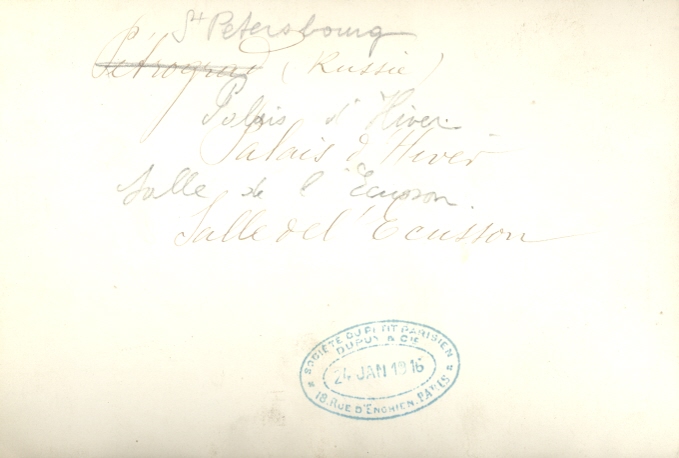 St Petersbourg
Pétrograd (Russie)
Palais d'Hiver
Palais d'Hiver
Salle de l'Ecusson
Salle de l'Ecusson
SOCIÉTÉ DU PETIT PARISIEN
DUPUY & CIE
24 JAN 1916
18, RUE D'ENGHIEN, PARIS